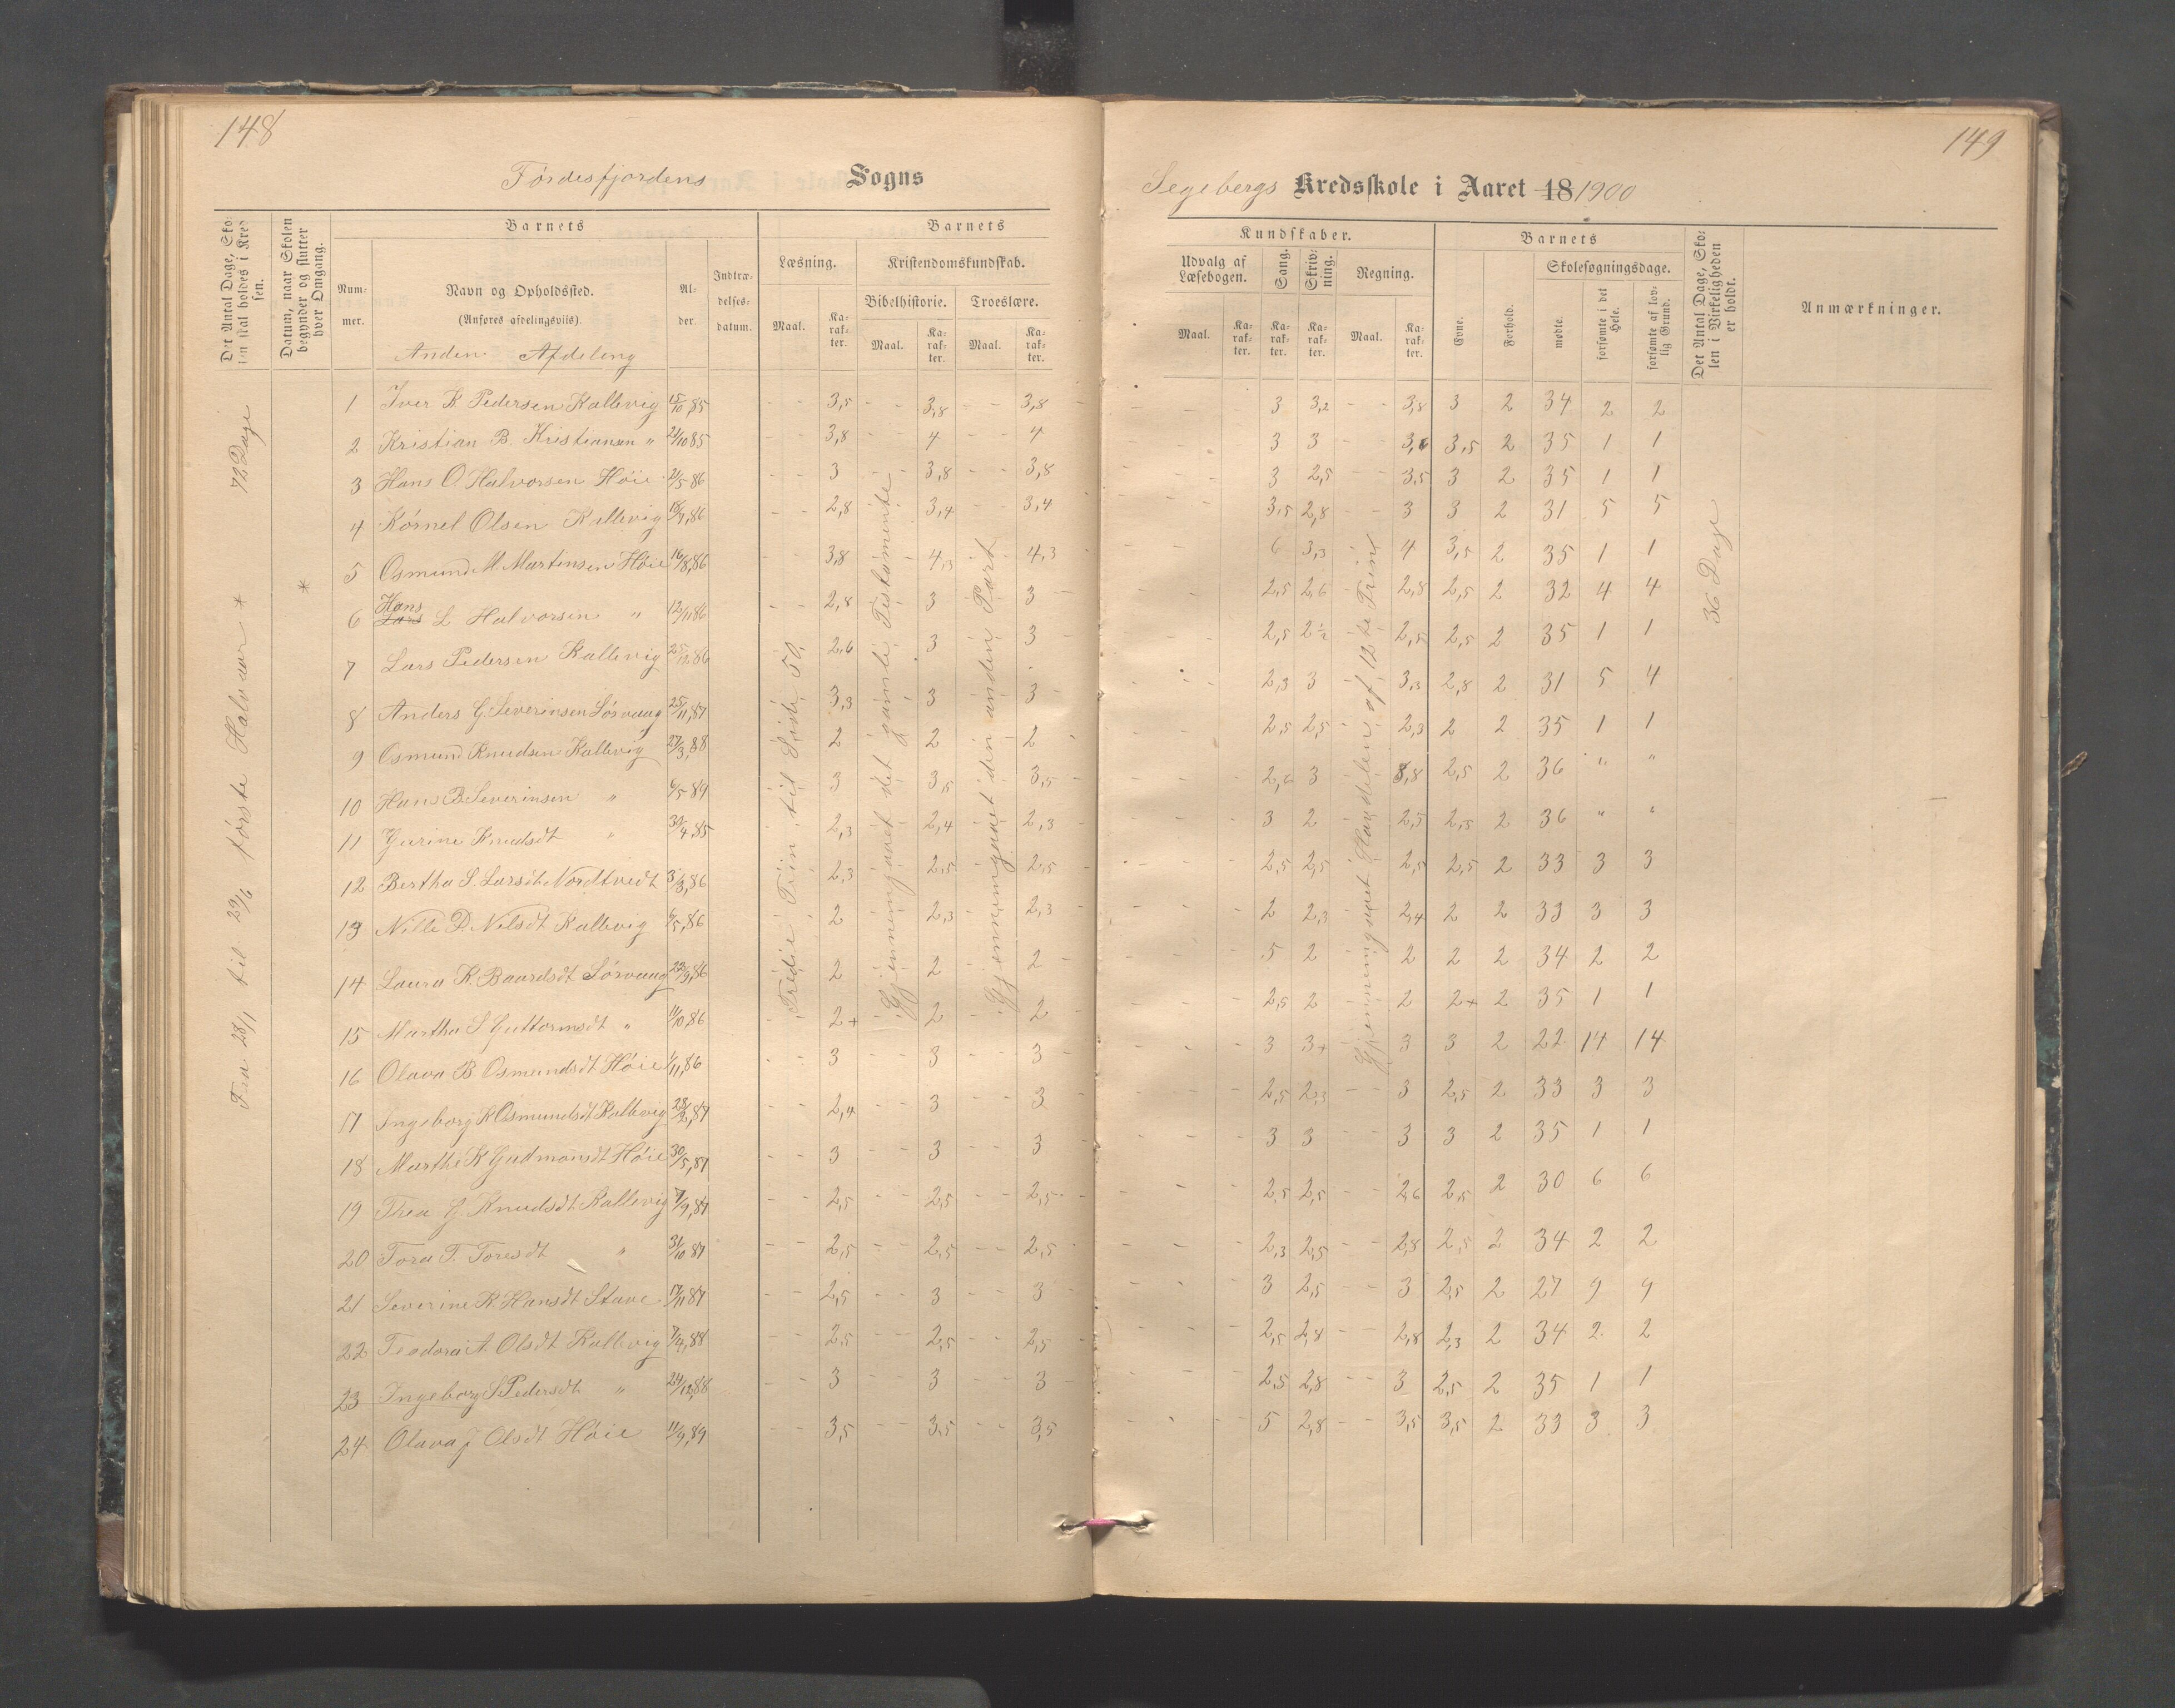 148
Førdesfjordens Sogns
Det Antal Dage, Skolen skal holdes i Kredsen.
Datum, naar Skolen begynder og slutter hver Omgang.
Barnets
Nummer.
Navn og Opholdssted.
(Anføres afdelingsviis).
Alder.
Indtrædelsesdatum.
Barnets
Læsning.
Kristendomskundskab.
Bibelhistorie. Troeslære.
Maal. Karakter. Maal. Karakter. Maal. Karakter.
Anden Afdeling
72 Dage
Fra 23/1 til 29/6 første Halvaar *
*
Tredie Trin til Side 50.
Gjennemgaaet det gamle Testamente
Gjennemgaaet den anden Part
1 Iver K. Pedersen Kallevig 15/10,85 3,5 3,8 3,8
2 Kristian B. Kristiansen " 21/10 85 3,8 4 4
3 Hans O. Halvorsen Høie 21/5 86 3 3,8 3,8
4 Kørnel Olsen Kallevig 18/7,86 2,8 3,4 3,4
5 Osmund M. Martinsen Høie 16/8,86 3,8 4,3 4,3
6 Hans Lars L Halvorsen " 12/11 86 2,8 3 3
7 Lars Pedersen Kallevig 25/12 86 2,6 3 3
8 Anders G Severinsen Sørvaag 25/11,87 3,3 3 3
9 Osmund Knudsen Kallevig 27/3,88 2 2 2
10 Hans B. Severinsen " 6/5 89 3 3,5 3,5
11 Gurine Knudsdt " 30/4,85 2,3 2,4 2,3
12 Bertha S. Larsdt Nordtvedt 3/3,86 2,3 2,5 2,5
13 Nille D. Nilsdt Kallevig 6/5,86 2 2,3 2,3
14 Laura K. Baardsdt Sørvaag 22/9,86 2 2 2
15 Martha S Guttormsdt " 11/10 86 2+ 2 2
16 Olava B Osmundsdt Høie 1/11,86 3 3 3
17 Ingeborg K Osmundsdt Kallevig 28/2,87 2,4 3 3
18 Marthe K Gudmonsdt Høie 30/5,87 3 3 3
19 Thea G. Knudsdt Kallevig 7/9,87 2,5 2,5 2,5
20 Tora T. Toresdt " 31/10 87 2,5 2,5 2,5
21 Severine K Hansdt Stave 17/11 87 2,5 3 3
22 Teodora A. Olsdt Kallevig 7/4,88 2,5 2,5 2,5
23 Ingeborg S Pedersdt " 24/12,88 3 3 3
24 Olava J Olsdt Høie 11/9,89 3,5 3,5 3,5
149
Segebergs Kredsskole i Aaret 18 1900
Kundskaber.
Udvalg af Læsebogen.
Sang.
Skrivning.
Regning.
Maal. Karakter. Karakter. Karakter. Maal. Karakter.
Barnets
Evne.
Forhold.
Skolesøgningsdage.
mødte.
forsømte i det Hele.
forsømte af lovlig Grund.
Det Antal Dage, Skolen i Virkeligheden er holdt.
Anmærkninger.
Gjennemgaaet Handelen af 12te Trin
36 Dage
3 3,2 3,8 3 2 34 2 2
3 3 3,6 3,5 2 35 1 1
3 2,5 3,5 3 2 35 1 1
3,5 2,8 3 3 2 31 5 5
6 3,3 4 3,5 2 35 1 1
2,5 2,6 2,8 2,5 2 32 4 4
2,5 2½ 2,5 2,5 2 35 1 1
2,3 3 3,3 2,8 2 31 5 4
2,5 2,5 2,3 2 2 35 1 1
2,6 3 3,8 2,5 2 36 " "
3 2 2,5 2,3 2 36 " "
2,5 2,5 2,5 2,5 2 33 3 3
2 2,3 2,4 2 2 33 3 3
5 2 2 2 2 34 2 2
2,5 2 2 2+ 2 35 1 1
3 3+ 3 3 2 22 14 14
2,5 2,3 3 2,5 2 33 3 3
3 3 3 3 2 35 1 1
2,5 2,5 2,6 2,5 2 30 6 6
2,3 2,5 2,8 2,5 2 34 2 2
3 2,5 3 2,5 2 27 9 9
2,5 2,8 2,8 2,3 2 34 2 2
2,5 2,8 3 2,5 2 35 1 1
5 2,8 3,5 3,5 2 33 3 3